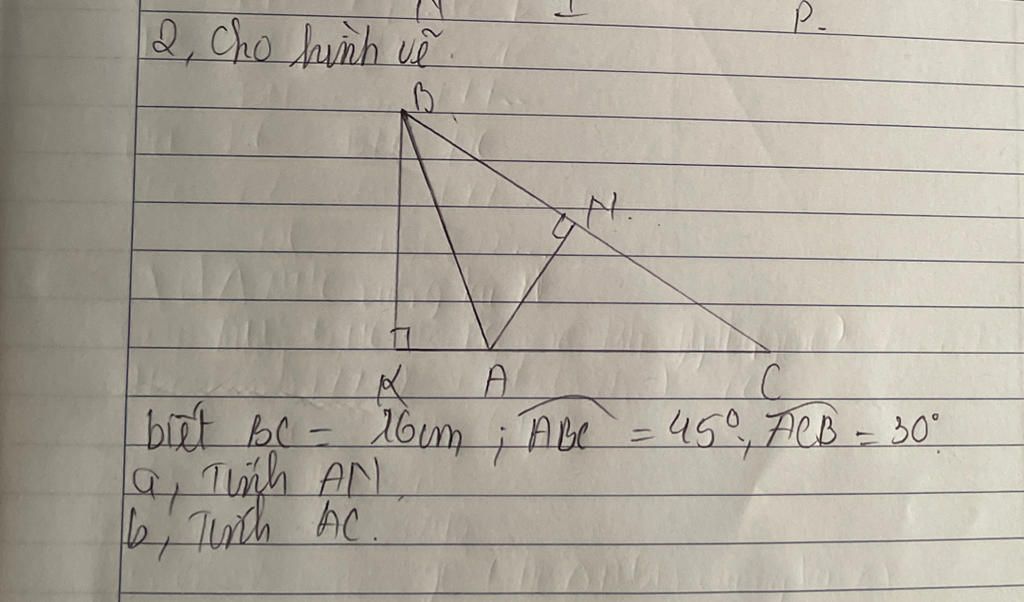 P.
2, Cho hình vẽ.
B
N.
K A C
biết BC = 16cm ; ABC = 45°, ACB = 30°
a, Tính AN.
b, Tính AC.